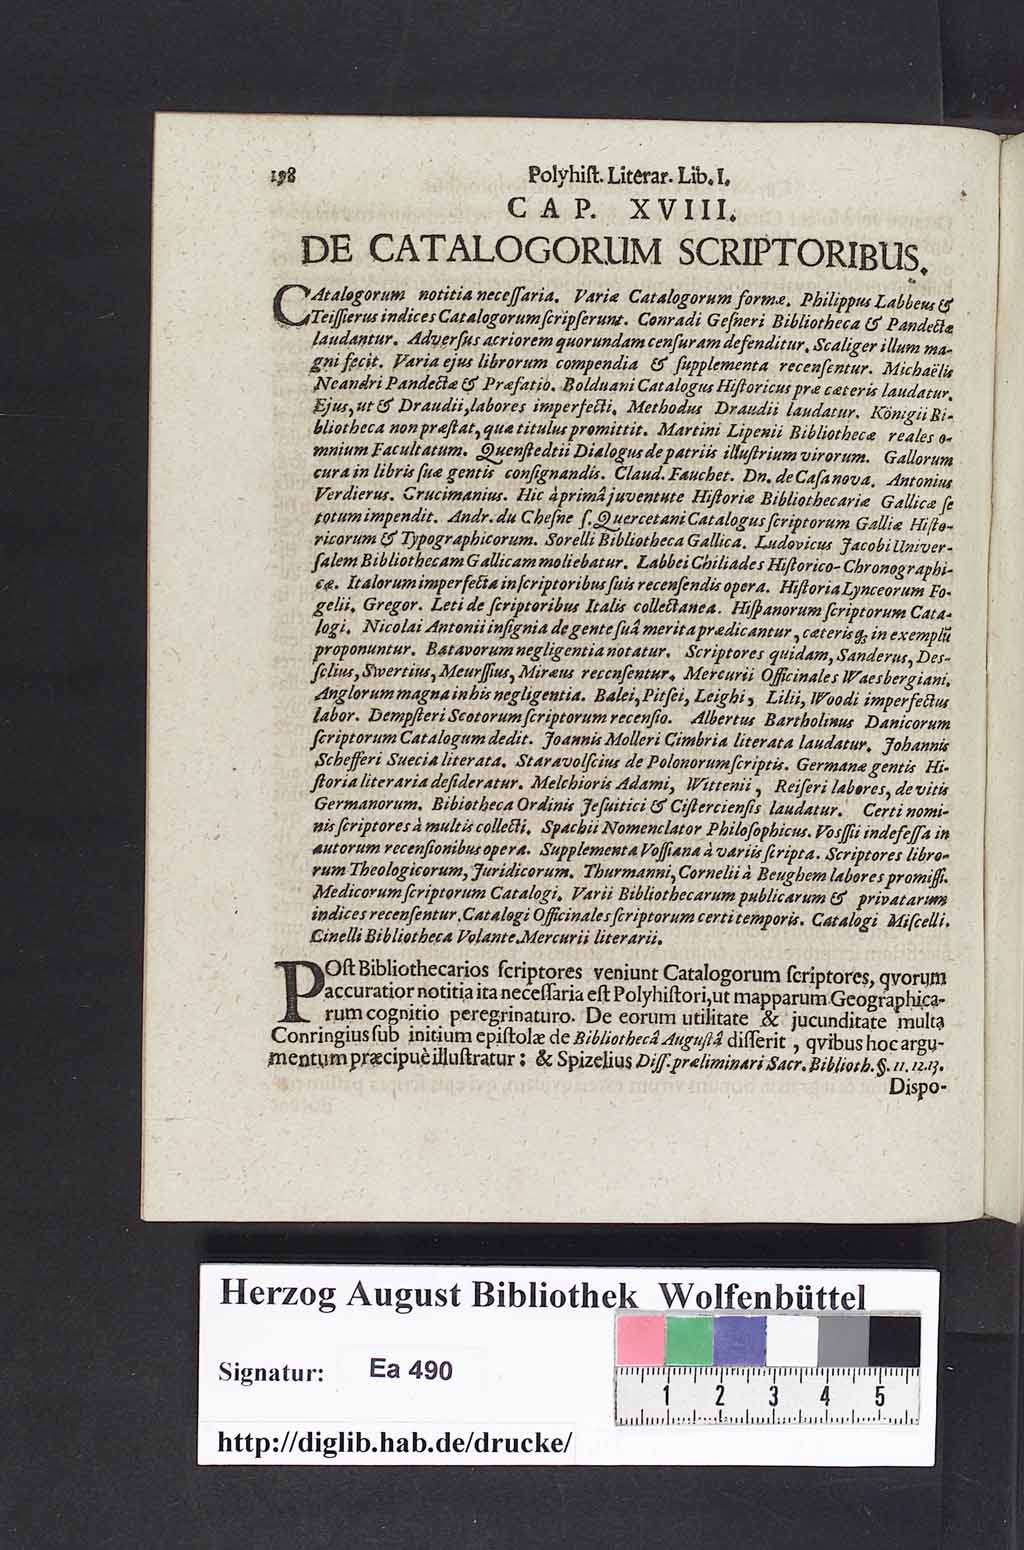 198 Polyhiſt. Literar. Lib. I.
CAP. XVIII.
DE CATALOGORUM SCRIPTORIBUS.
CAtalogorum notitia neceſſaria. Variæ Catalogorum formæ. Philippus Labbeus &
Teiſſierus indices Catalogorum ſcripſerunt. Conradi Geſneri Bibliotheca & Pandectæ
laudantur. Adverſus acriorem quorundam cenſuram defenditur. Scaliger illum ma-
gni fecit. Varia ejus librorum compendia & ſupplementa recenſentur. Michaëlis
Neandri Pandectæ & Præfatio. Bolduani Catalogus Hiſtoricus præ cæteris laudatur.
Ejus, ut & Draudii, labores imperfecti. Methodus Draudii laudatur. Königii Bi-
bliotheca non præſtat, quæ titulus promittit. Martini Lipenii Bibliothecæ reales o-
mnium Facultatum. Quenſtedtii Dialogus de patriis illuſtrium virorum. Gallorum
cura in libris ſuæ gentis conſignandis. Claud. Fauchet. Dn. de Caſanova. Antonius
Verdierus. Crucimanius. Hic à primâ juventute Hiſtoriæ Bibliothecariæ Gallicæ ſe
totum impendit. Andr. du Cheſne ſ. Quercetani Catalogus ſcriptorum Galliæ Hiſto-
ricorum & Typographicorum. Sorelli Bibliotheca Gallica. Ludovicus Jacobi Univer-
ſalem Bibliothecam Gallicam moliebatur. Labbei Chiliades Hiſtorico-Chronographi-
cæ. Italorum imperfecta in ſcriptoribus ſuis recenſendis opera. Hiſtoria Lynceorum Fo-
gelii. Gregor. Leti de ſcriptoribus Italis collectanea. Hiſpanorum ſcriptorum Cata-
logi. Nicolai Antonii inſignia de gente ſuâ merita prædicantur, cæterisq; in exemplũ
proponuntur. Batavorum negligentia notatur. Scriptores quidam, Sanderus, Des-
ſelius, Swertius, Meurſſius, Miræus recenſentur. Mercurii Officinales Waesbergiani.
Anglorum magna in his negligentia. Balei, Pitſei, Leighi, Lilii, Woodi imperfectus
labor. Dempſteri Scotorum ſcriptorum recenſio. Albertus Bartholinus Danicorum
ſcriptorum Catalogum dedit. Joannis Molleri Cimbria literata laudatur. Johannis
Schefferi Suecia literata. Staravolſcius de Polonorum ſcriptis. Germanæ gentis Hi-
ſtoria literaria deſideratur. Melchioris Adami, Wittenii, Reiſeri labores, de vitis
Germanorum. Bibiotheca Ordinis Jeſuitici & Ciſtercienſis laudatur. Certi nomi-
nis ſcriptores à multis collecti. Spachii Nomenclator Philoſophicus. Vosſſii indefeſſa in
autorum recenſionibus opera. Supplementa Voſſiana à variis ſcripta. Scriptores libro-
rum Theologicorum, Juridicorum. Thurmanni, Cornelii à Beughem labores promiſſi.
Medicorum ſcriptorum Catalogi. Varii Bibliothecarum publicarum & privatarum
indices recenſentur. Catalogi Officinales ſcriptorum certi temporis. Catalogi Miſcelli.
Cinelli Bibliotheca Volante. Mercurii literarii.
POſt Bibliothecarios ſcriptores veniunt Catalogorum ſcriptores, qvorum
accuratior notitia ita neceſſaria eſt Polyhiſtori, ut mapparum Geographica-
rum cognitio peregrinaturo. De eorum utilitate & jucunditate multa
Conringius ſub initium epiſtolæ de Bibliothecâ Auguſtâ diſſerit, qvibus hoc argu-
mentum præcipuè illuſtratur: & Spizelius Diſſ. præliminari Sacr. Biblioth. §. 11. 12. 13.
Dispo-
Herzog August Bibliothek Wolfenbüttel
Signatur: Ea 490
1 2 3 4 5
http://diglib.hab.de/drucke/